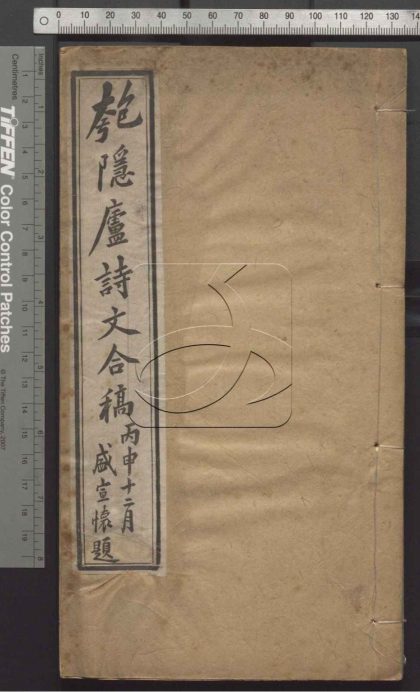 0 10 20 30 40 50 60 70 80 90 100 110 120 130
Inches
Centimetres
TIFFEN Color Control Patches
© The Tiffen Company, 2007
1 2 3 4 5 6 7 8
1 2 3 4 5 6 7 8 9 10 11 12 13 14 15 16 17 18 19
匏隱廬詩文合稿
丙申十二月
盛宣懷題